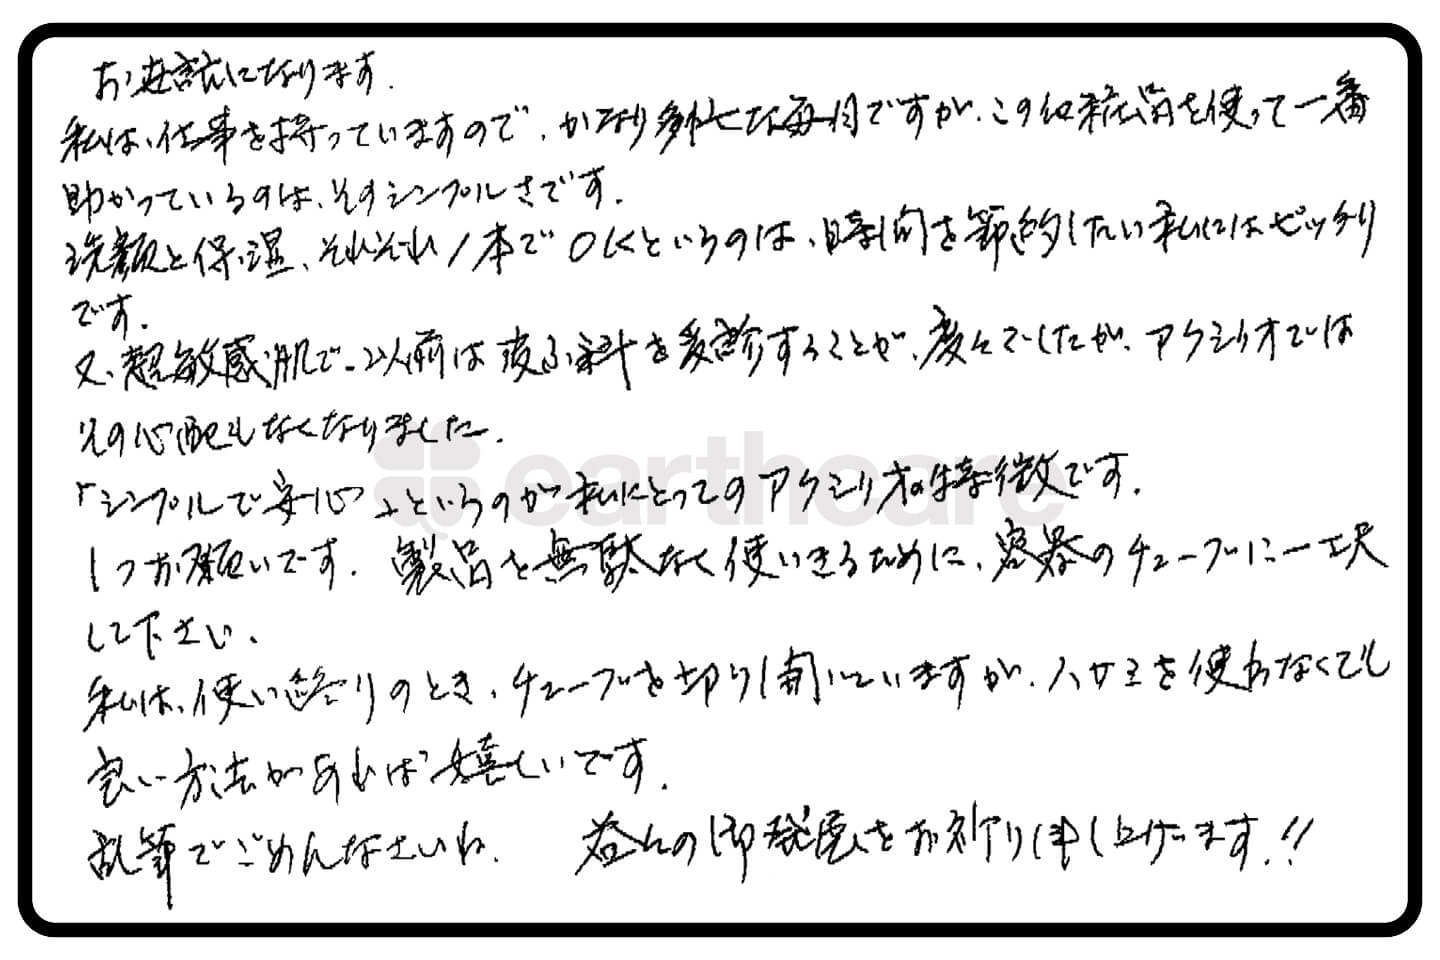 お世話になります.
私は、仕事を持っていますので、かなり多忙な毎日ですが、この化粧品を使って一番
助かっているのは、そのシンプルさです.
洗顔と保湿、それぞれ1本でOKというのは、時間を節約したい私にはピッタリ
です.
又、超敏感肌で、以前は皮ふ科を受診することが、度々でしたが、アクシリオでは
その心配もなくなりました.
「シンプルで安心」というのが私にとってのアクシリオの特徴です.
1つお願いです. 製品を無駄なく使いきるために、容器のチューブに一工夫
して下さい.
私は、使い終りのとき、チューブを切り開いていますが、ハサミを使わなくても
良い方法があれば嬉しいです.
乱筆でごめんなさいね. 益々の御発展をお祈り申し上げます!!
earthcare